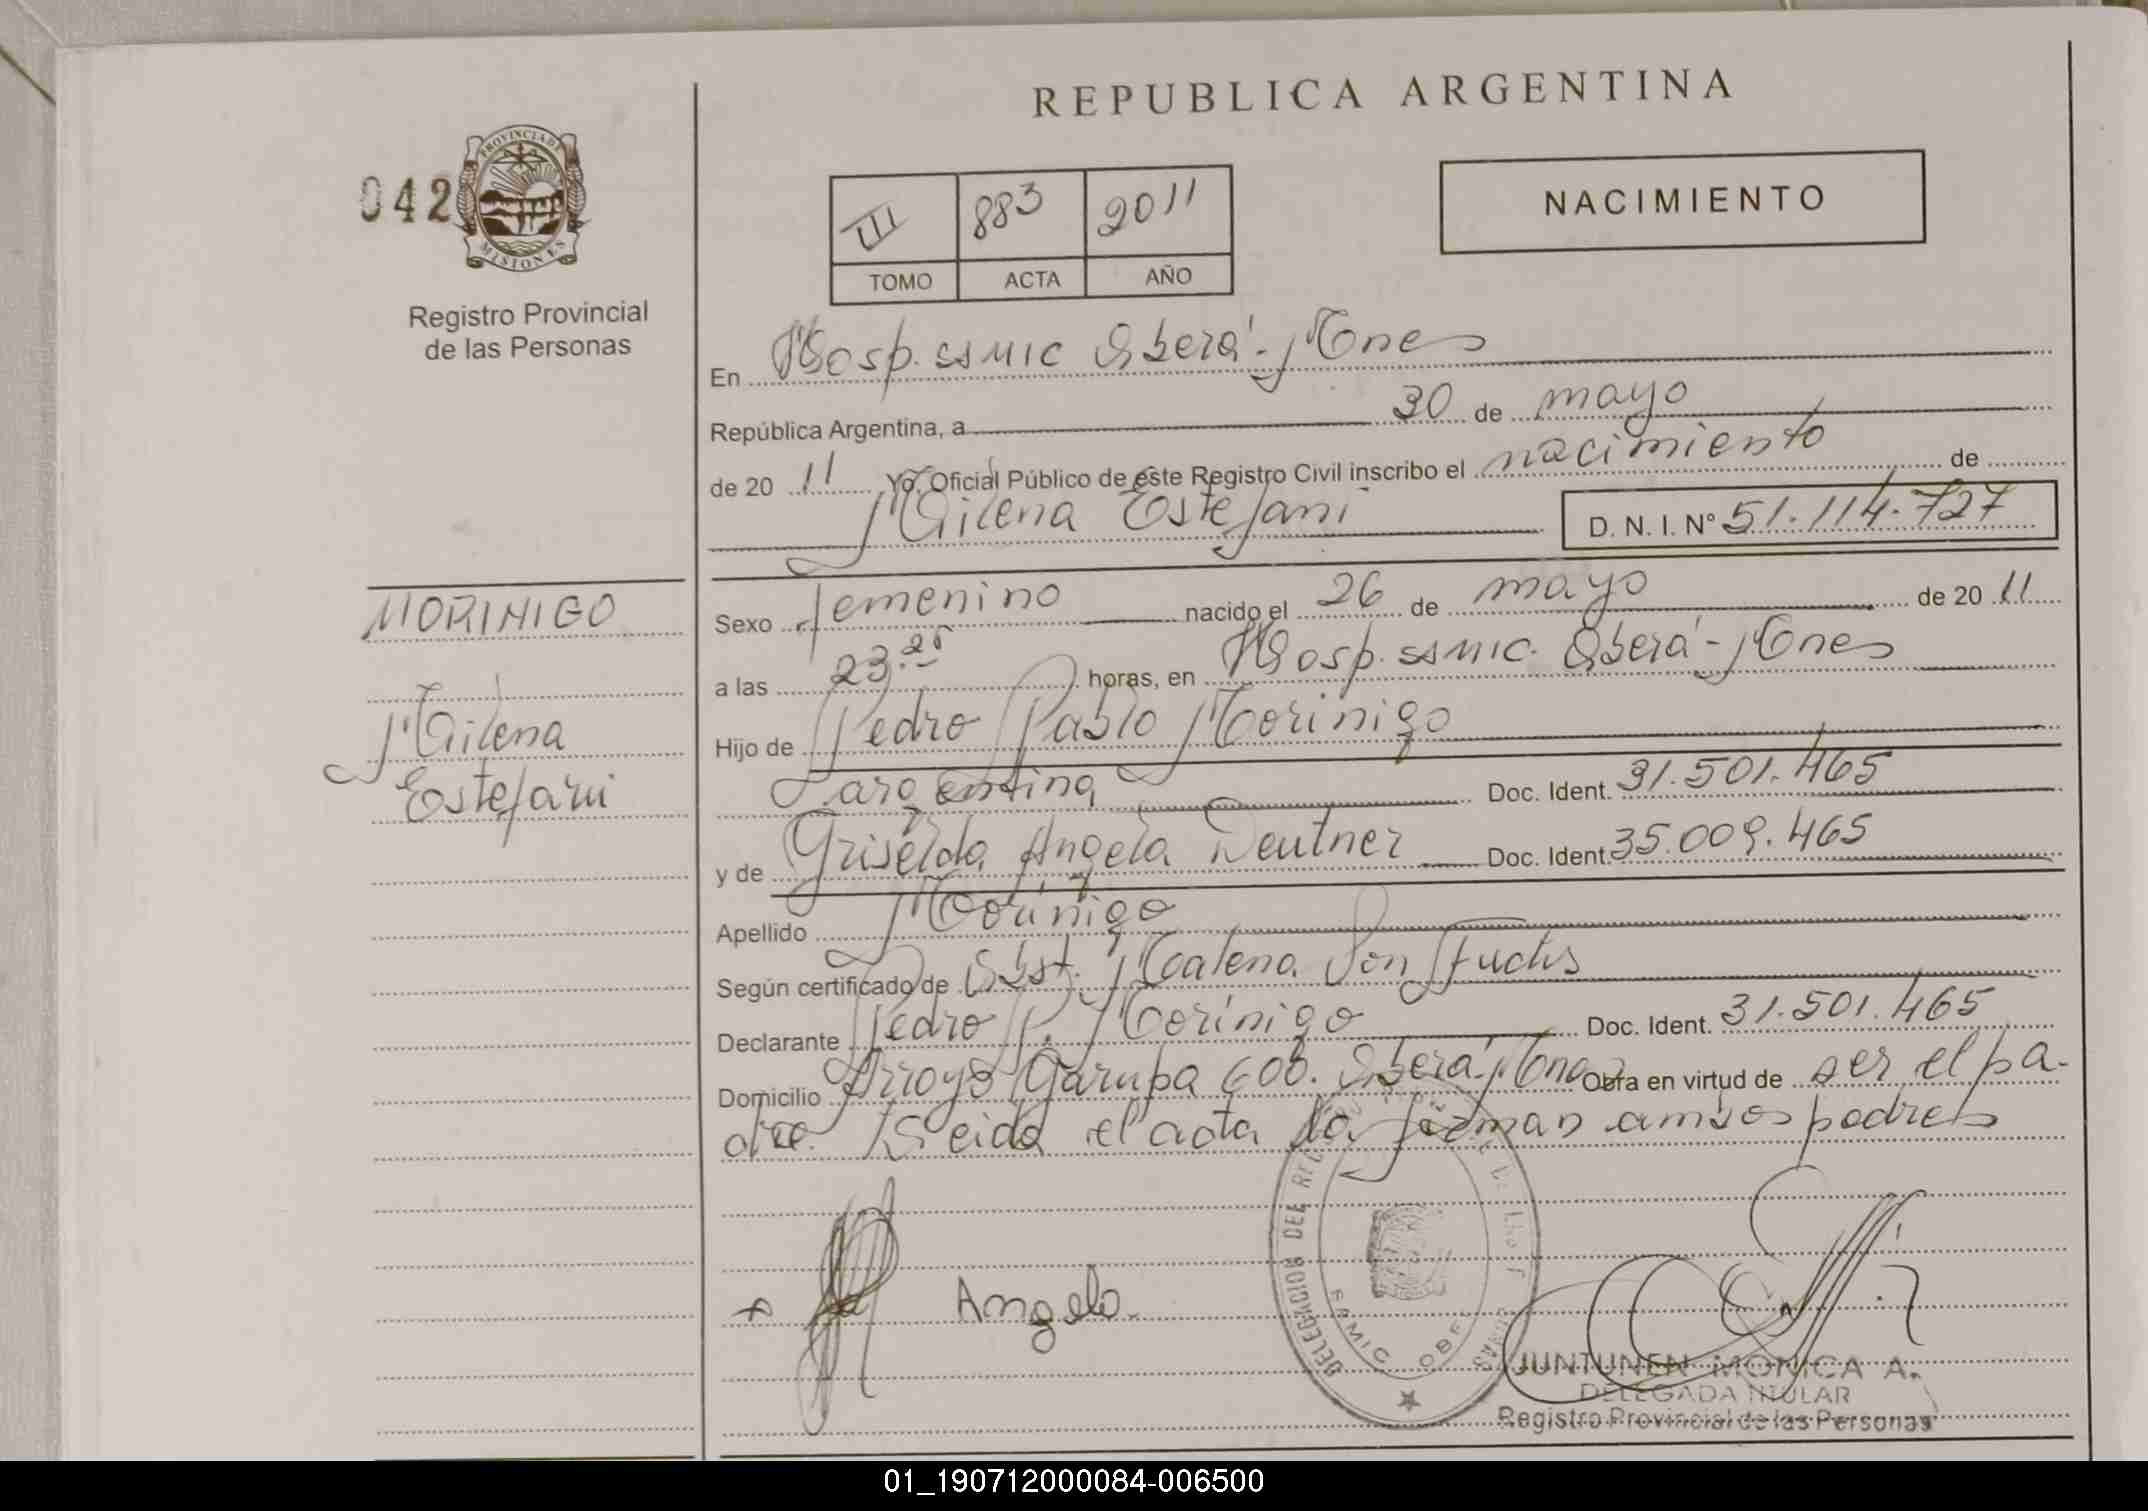 REPUBLICA ARGENTINA
042
PROVINCIA DE
MISIONES
Registro Provincial
de las Personas
III 883 2011
TOMO ACTA AÑO
NACIMIENTO
En Hosp. SAMIC Oberá - Mnes
República Argentina, a 30 de mayo
de 20 11 Yo, Oficial Público de este Registro Civil inscribo el nacimiento de
Milena Estefani D. N. I. Nº 51.114.727
MORINIGO
Milena
Estefani
Sexo femenino nacido el 26 de mayo de 20 11
a las 23.25 horas, en Hosp. SAMIC. Oberá - Mnes
Hijo de Pedro Pablo Morinigo
argentina Doc. Ident. 31.501.465
y de Griselda Angela Deutner Doc. Ident. 35.009.465
Apellido Morinigo
Según certificado de Obst. Malena Von
Declarante Pedro P. Morinigo Doc. Ident. 31.501.465
Domicilio Arroyo Garupa 600. Oberá Mnes Obra en virtud de ser el pa-
dre. Leida el acta la firman ambos padres
Angela
DELEGACION DEL
SAMIC OBE
JUNTUNEN MONICA A.
DELEGADA TITULAR
Registro Provincial de las Personas
01_190712000084-006500